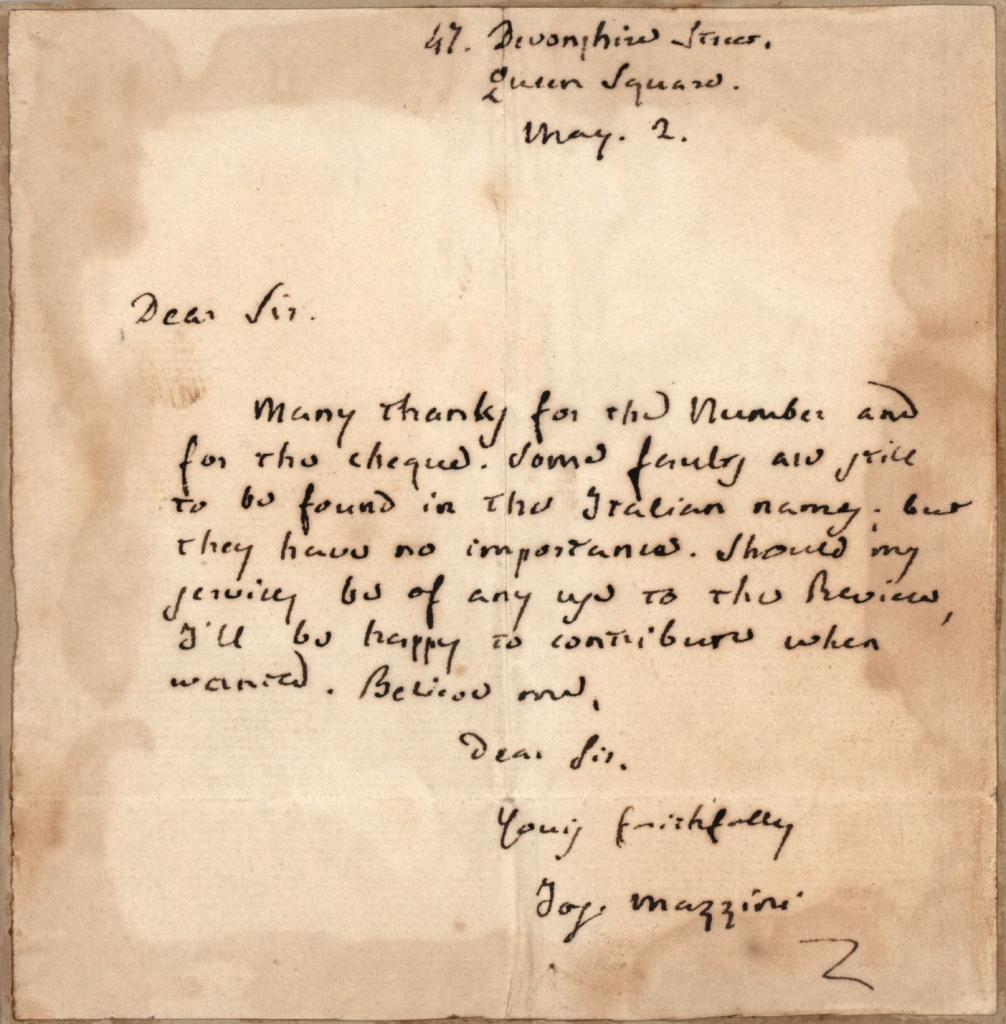 47. Devonshire Street.
Queen Square.
May. 2.
Dear Sir.
Many thanks for the Number and
for the cheque. Some faults are still
to be found in the Italian names; but
they have no importance. Should my
services be of any use to the Review,
I'll be happy to contribute when
wanted. Believe me,
Dear Sir.
Yours faithfully
Jos. Mazzini